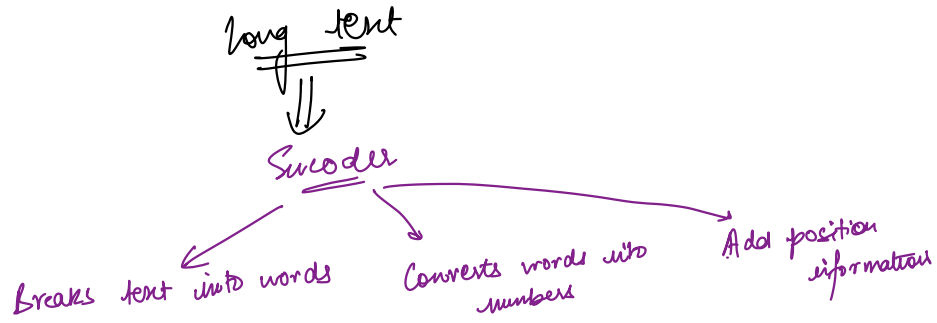 long text
Encoder
Breaks text into words
Converts words into
numbers
Add position
information